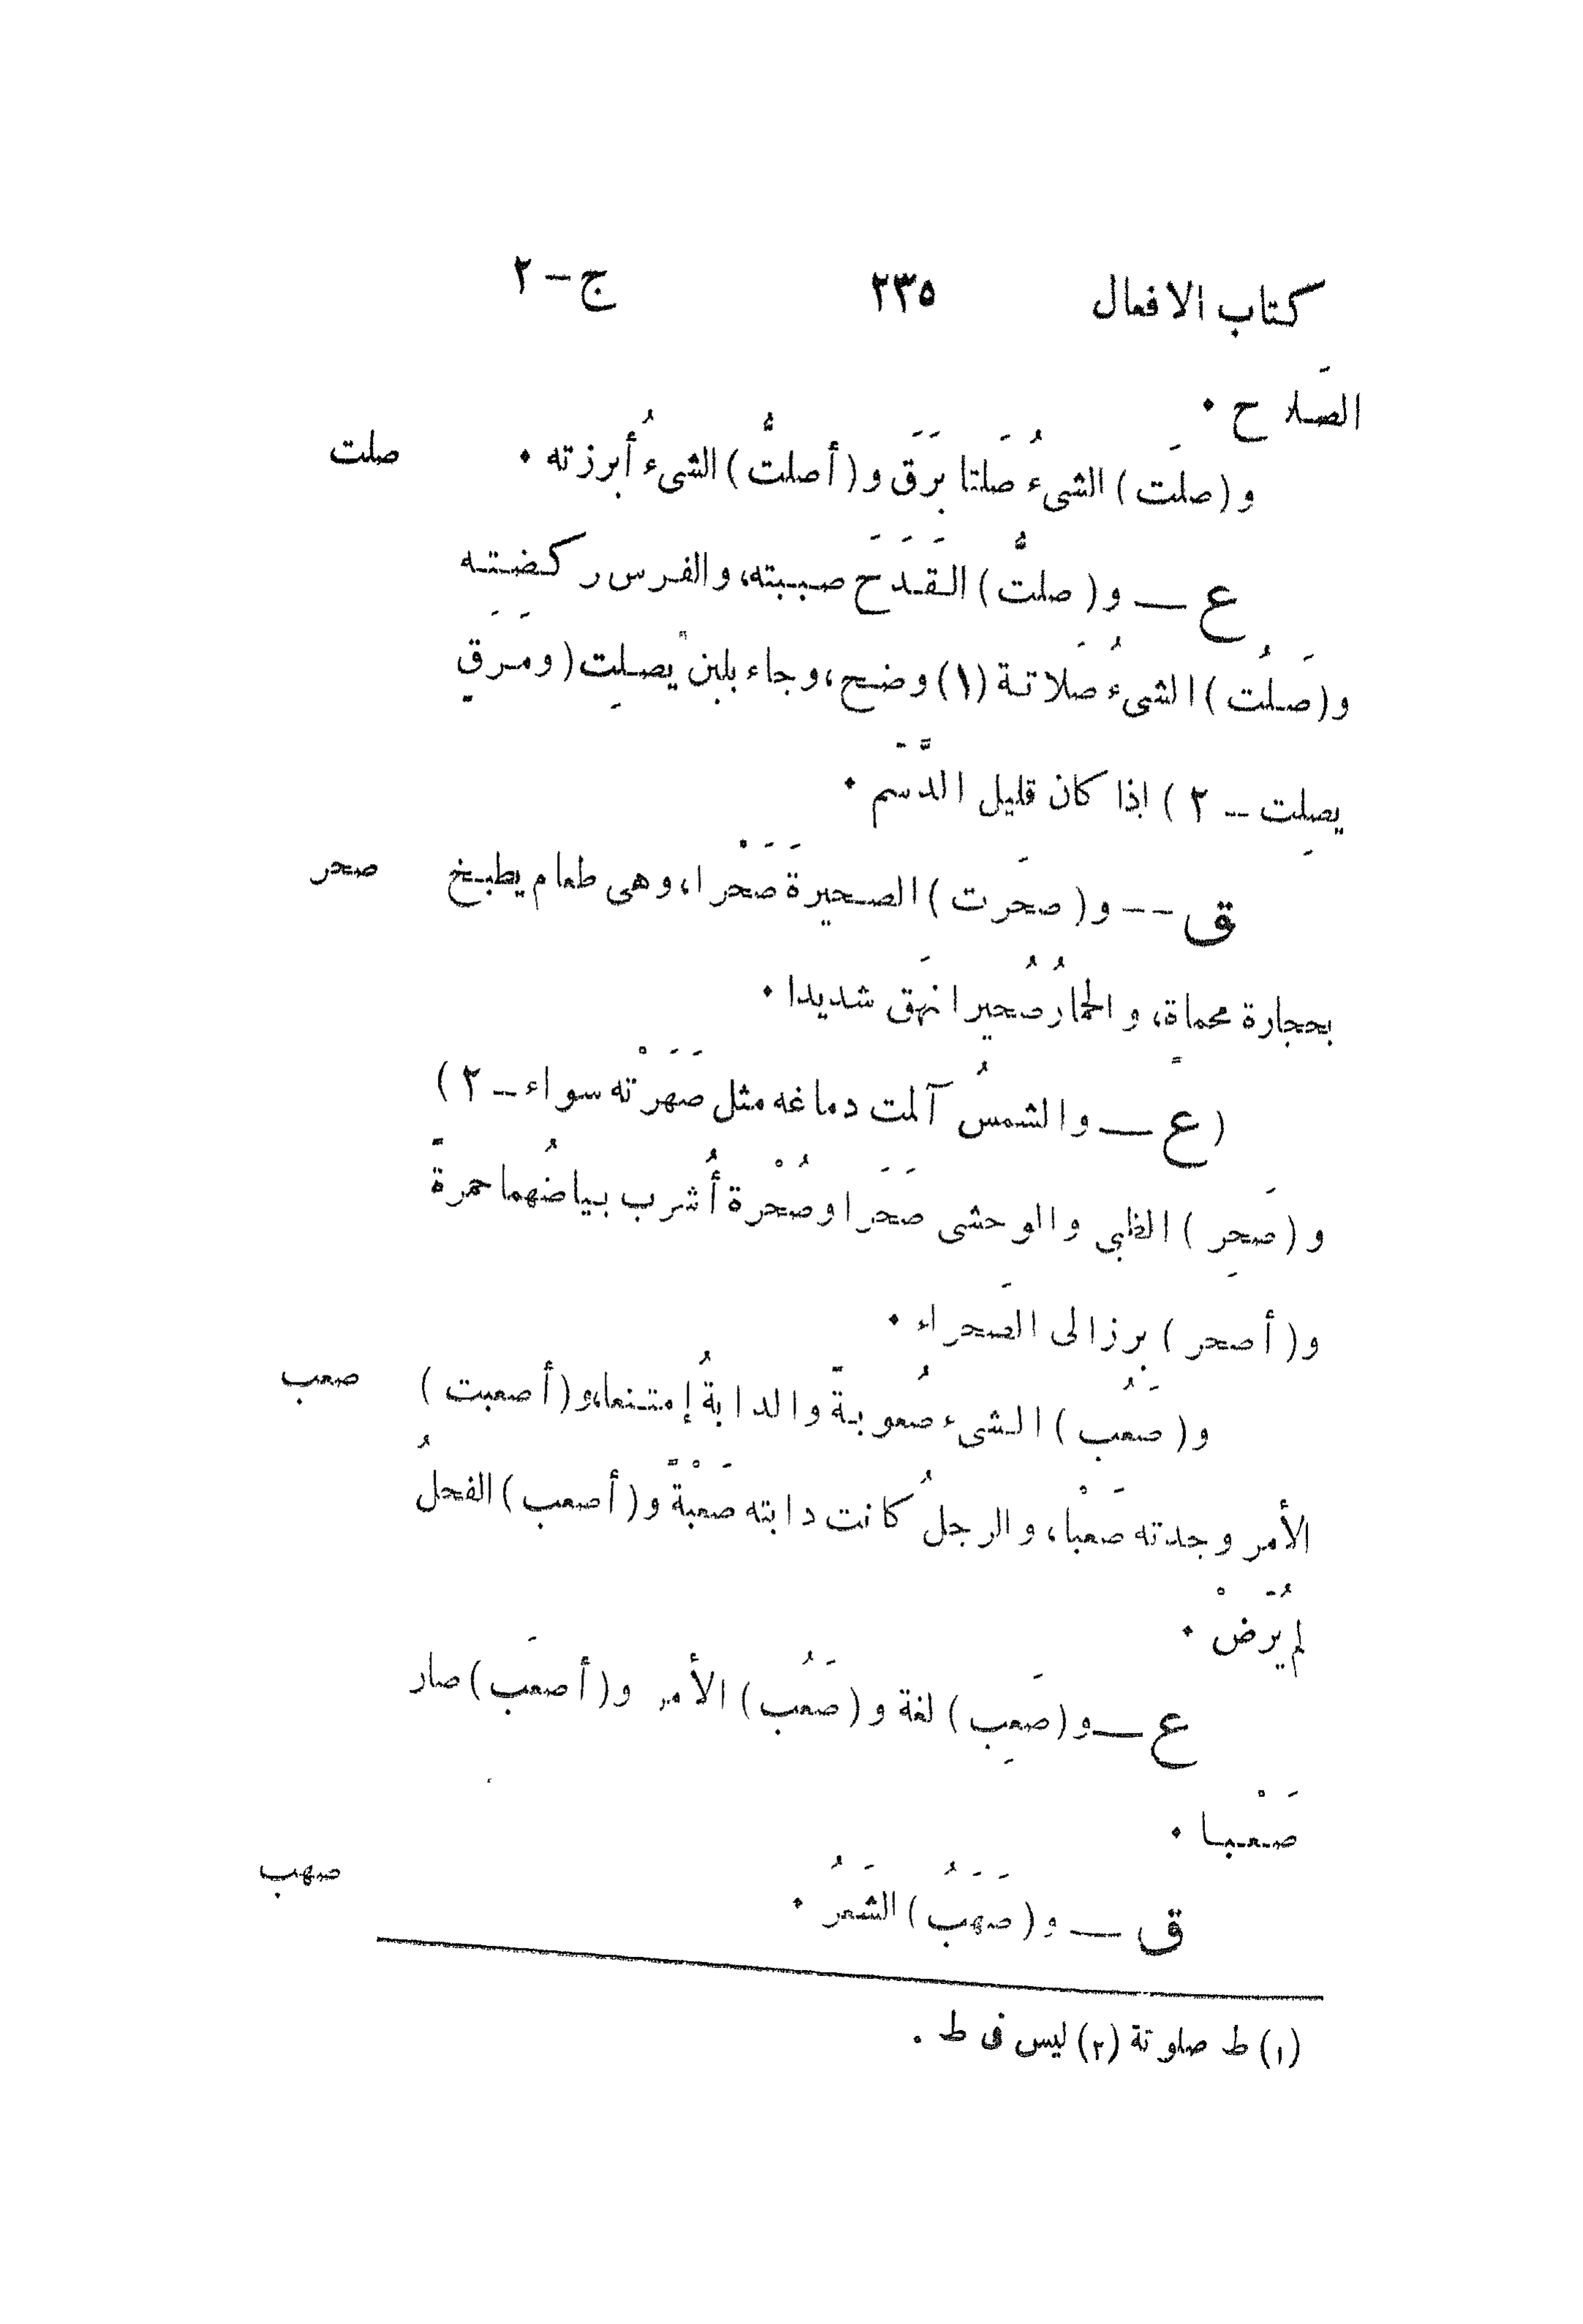 كتاب الافعال ٢٣٥ ج – ٢
الصَلاح ٠
و (صلَت) الشىءُ صَلتا بَرَق و (أصلتُّ) الشىءُ أبرزته ٠ صلت
ع — و (صلتُّ) القَدَحَ صببته، والفرس ركضته
و (صَلُت) الشىءُ صَلاتة (١) وضح، وجاء بلبن يصلِت (ومَرَقٍ
يصلِت – ٢) إذا كان قليل الدَّسَم ٠
ق -- و (صحَرت) الصحيرة صَحْرا، وهى طعام يطبخ صحر
بحجارة محماةٍ، والحمارُ صُحيرا نهَق شديدا ٠
(ع — والشمسُ آلمت دماغه مثل صَهَرْته سواء – ٢)
و (صَحِر) الظبى والوحشى صَحَرا وصُحْرة أُشرب بياضُهما حمرةً
و (أصحر) برز الى الصَحراء ٠
و (صَعُب) الشىء صُعوبةً والدابةُ إمتنعا، و (أصعبت) صعب
الأمر وجدته صَعْبا، والرجلُ كانت دابته صَعْبةً و (أصعب) الفحلُ
لم يُرَضْ ٠
ع — و (صَعِب) لغة و (صَعُب) الأمر و (أصعَب) صار
صَعْبا ٠
ق — و (صَهَبُ) الشَعَرُ ٠ صهب
(١) ط صلوتة (٢) ليس فى ط .